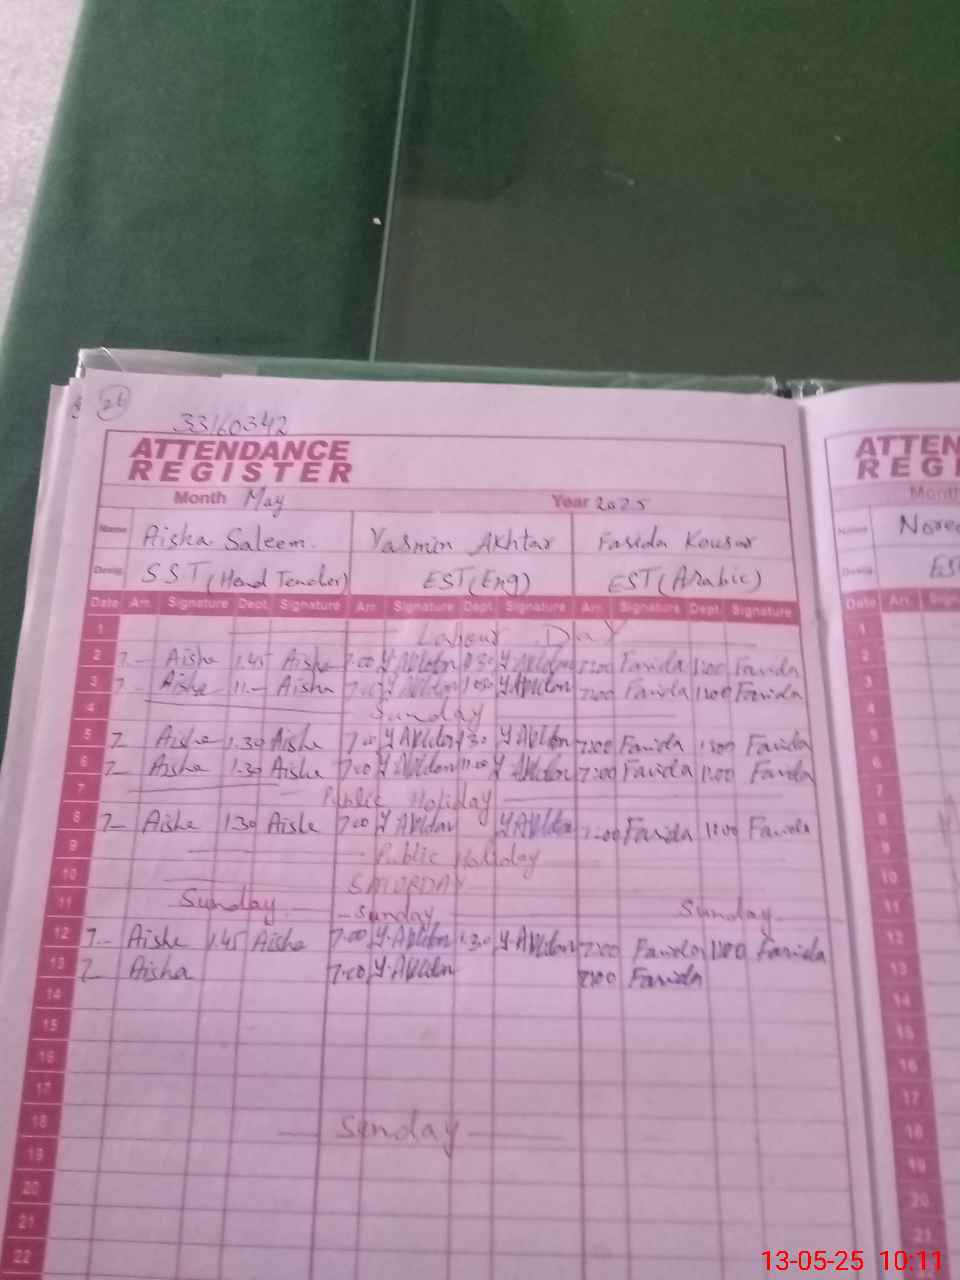 26
33160342
ATTENDANCE
REGISTER
Month May Year 2025
Name Aisha Saleem. Yasmin Akhtar Farida Kousar
Desig. SST (Head Teacher) EST (Eng) EST (Arabic)
Date Arr. Signature Dept. Signature Arr. Signature Dept. Signature Arr. Signature Dept. Signature
1 Labour Day
2 7- Aisha 1.45 Aisha 7.00 1.30 7:00 Farida Farida
3 7- Aisha 11.- Aisha 7.00 7:00 Farida 11:00 Farida
4 Sunday
5 7- Aisha 1.30 Aisha 7.00 1.30 7:00 Farida Farida
6 7- Aisha 1.30 Aisha 7.00 11.00 7:00 Farida Farida
7 Public Holiday
8 7- Aisha 1.30 Aisha 7.00 7:00 Farida Farida
9 Public Holiday
10 SATURDAY
11 Sunday Sunday Sunday
12 7- Aisha 1.45 Aisha 7.00 1.30 7:00 Farida Farida
13 7- Aisha 7.00 7:00 Farida
14
15
16
17
18 Sunday
19
20
21
22
ATTEN
REGI
Month
Name
Desig. EST
Date Arr.
1
2
3
4
5
6
7
8
9
10
11
12
13
14
15
16
17
18
19
20
21
13-05-25 10:11